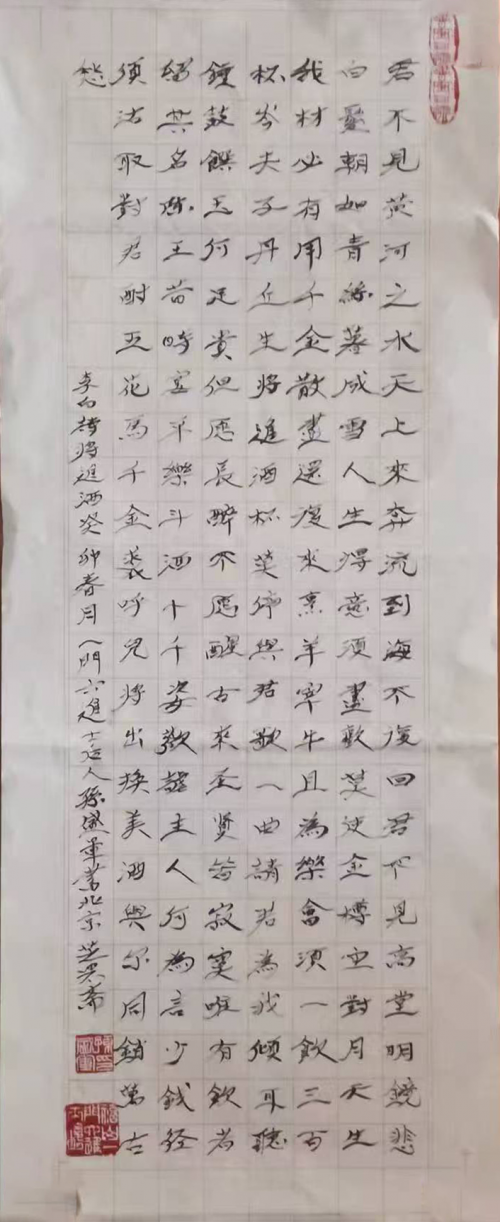 君不見黃河之水天上來奔流到海不復回君不見高堂明鏡悲
白髮朝如青絲暮成雪人生得意須盡歡莫使金樽空對月天生
我材必有用千金散盡還復來烹羊宰牛且為樂會須一飲三百
杯岑夫子丹丘生將進酒杯莫停與君歌一曲請君為我傾耳聽
鐘鼓饌玉何足貴但愿長醉不愿醒古來圣賢皆寂寞唯有飲者
留其名陈王昔時宴平樂斗酒十千恣歡謔主人何為言少錢径
須沽取對君酎五花馬千金裘呼兒將出換美酒與尔同銷萬古
愁
李白詩將進酒癸卯春月八門六進士后人孫盛軍書北京芝蘭齋